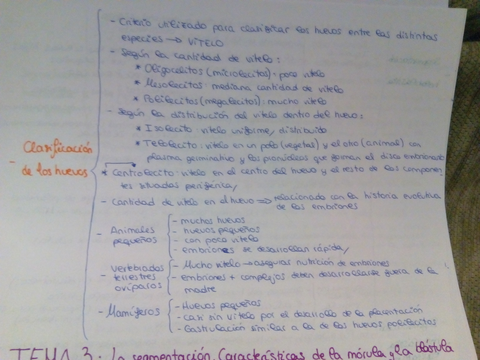 - Criterio unificado para clasificar los huevos entre las distintas
especies → VITELO
- Según la cantidad de vitelo:
* Oligolecitos (microlecitos): poco vitelo
* Mesolecitos: mediana cantidad de vitelo
* Polilecitos (megalecitos): mucho vitelo
- Según la distribución del vitelo dentro del huevo:
* Isolecito: vitelo uniforme, distribuido
* Telolecito: vitelo en un polo (vegetal) y el otro (animal) con
plasma germinativo y los pronúcleos que forman el disco embrionario
* Centrolecito: vitelo en el centro del huevo y el resto de los componen-
tes situados periférica,
Clasificación
- de los huevos
- Cantidad de vitelo en el huevo → relacionado con la historia evolutiva
de los embriones
- Animales
pequeños
- muchos huevos
- huevos pequeños
- con poco vitelo
- embriones se desarrollan rápida,
- Vertebrados
terrestres
ovíparos
- Mucho vitelo → asegurar nutrición de embriones
- embriones + complejos deben desarrollarse fuera de la
madre
- Mamíferos
- Huevos pequeños
- casi sin vitelo por el desarrollo de la placentación
- Gastrulación similar a la de los huevos polilecitos
TEMA 3: La segmentación. Características de la mórula y la blástula